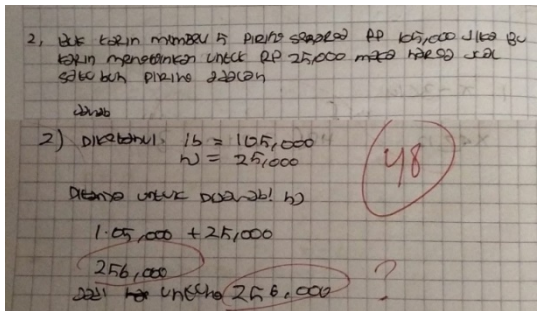 2, Buk tarin membeli 5 piring seharga RP 105,000 Jika Bu
tarin menetankan untuk RP 25,000 maka harga Jual
satu buh piring adalah
Jawab
2) Diketahui. 1b = 105,000
= 25,000
48
Ditanya untuk Dijawab!
1.05,000 + 25,000
256,000
Jadi untuhg 256,000 ?